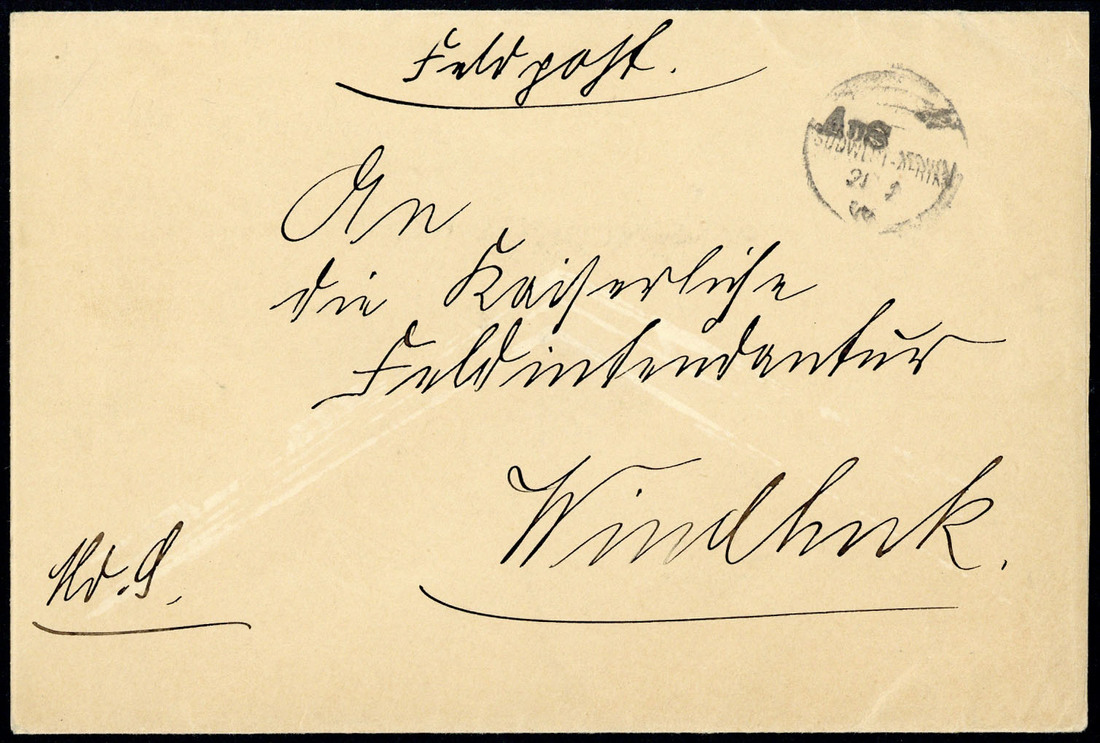 Feldpost.
Aus
SÜDWEST-AFRIKA
An
die Kaiserliche
Feldintendantur
Windhuk.